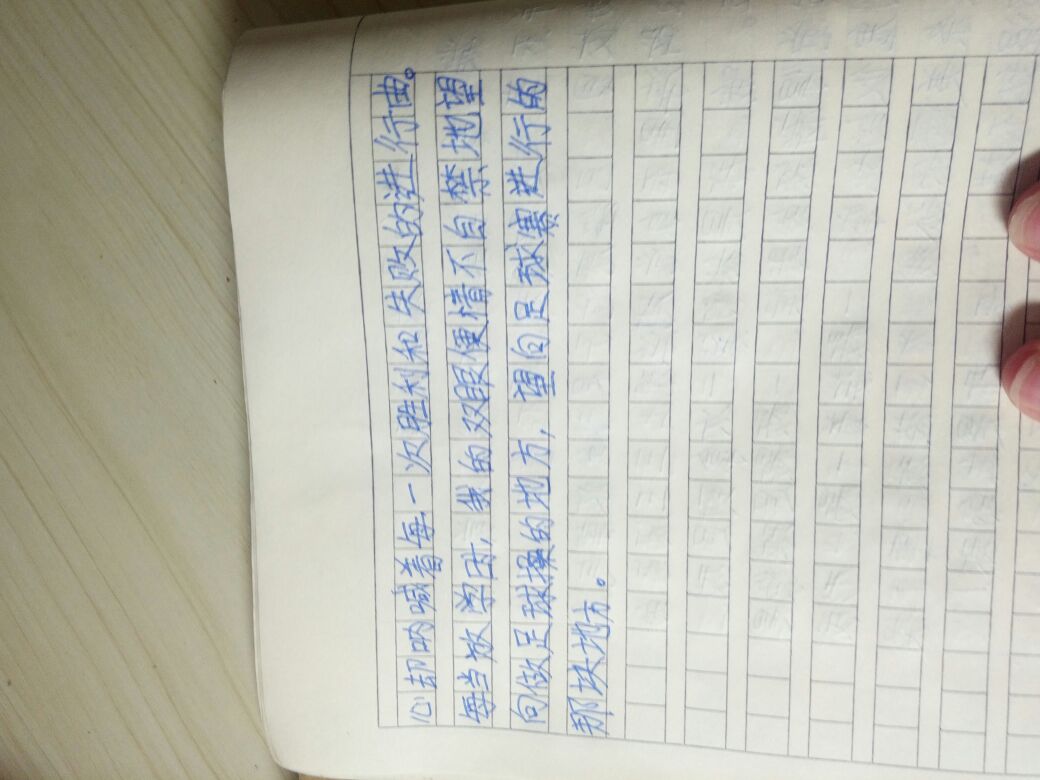 心却呐喊着每一次胜利和失败的进行曲。
每当放学时，我的双眼便情不自禁地望
向做足球操的地方，望向足球赛进行的
那块地方。